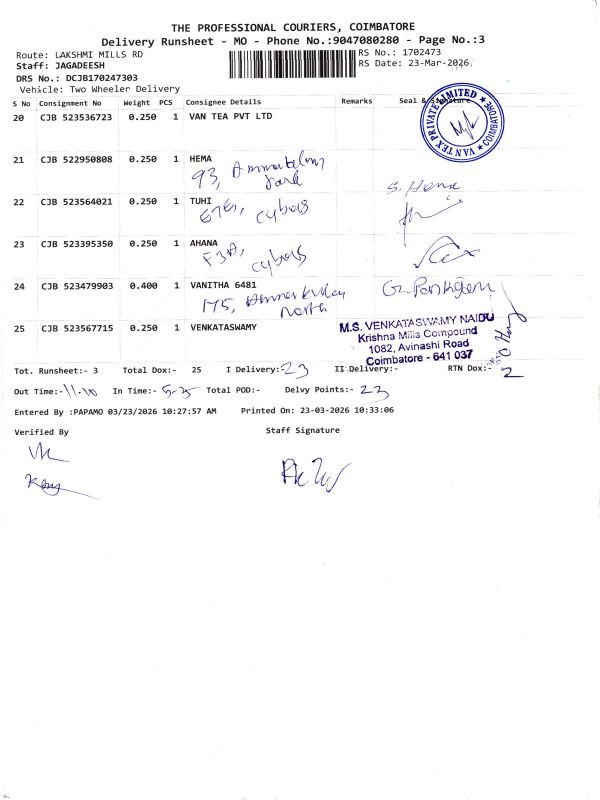 THE PROFESSIONAL COURIERS, COIMBATORE
Delivery Runsheet - MO - Phone No.:9047080280 - Page No.:3
Route: LAKSHMI MILLS RD
RS No.: 1702473
Staff: JAGADEESH
RS Date: 23-Mar-2026
DRS No.: DCJB170247303
Vehicle: Two Wheeler Delivery
S No Consignment No Weight PCS Consignee Details Remarks Seal & Signature
20 CJB 523536723 0.250 1 VAN TEA PVT LTD
VAN TEX PRIVATE LIMITED * COIMBATORE *
21 CJB 522950808 0.250 1 HEMA
93,
S. Hema
22 CJB 523564021 0.250 1 TUHI
23 CJB 523395350 0.250 1 AHANA
24 CJB 523479903 0.400 1 VANITHA 6481
175,
North
25 CJB 523567715 0.250 1 VENKATASWAMY
M.S. VENKATASWAMY NAIDU
Krishna Mills Compound
1082, Avinashi Road
Coimbatore - 641 037
Tot. Runsheet:- 3 Total Dox:- 25 I Delivery:- 23 II Delivery:- RTN Dox:- 2
Out Time:- 11.10 In Time:- 5-25 Total POD:- Delvy Points:- 23
Entered By :PAPAMO 03/23/2026 10:27:57 AM Printed On: 23-03-2026 10:33:06
Verified By Staff Signature